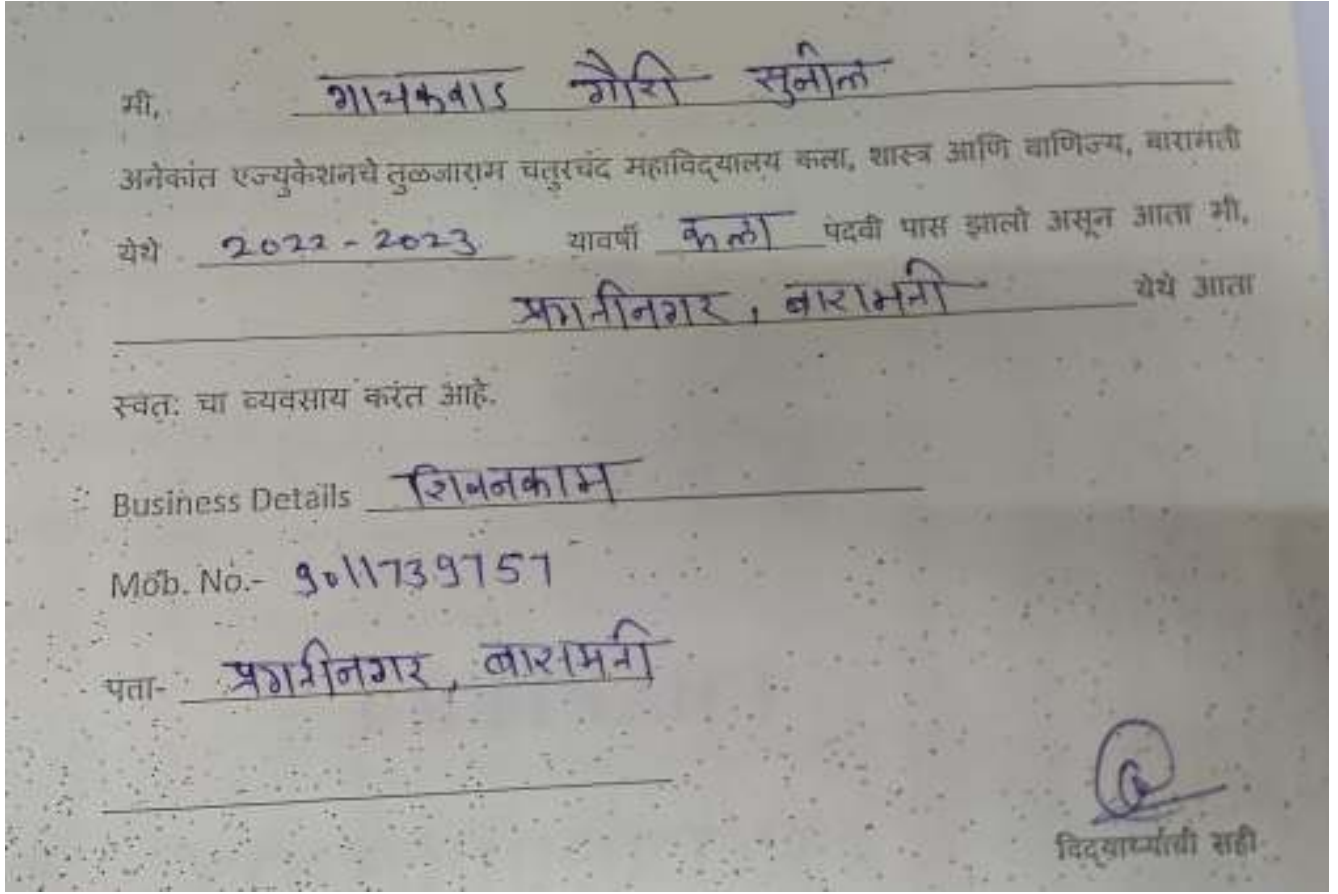 मी, गायकवाड गौरी सुनील
अनेकांत एज्युकेशनचे तुळजाराम चतुरचंद महाविद्यालय कला, शास्त्र आणि वाणिज्य, बारामती
येथे 2022-2023 यावर्षी कला पदवी पास झालो असून आता मी,
प्रगतीनगर, बारामती येथे आता
स्वत: चा व्यवसाय करत आहे.
Business Details शिवनकाम
Mob. No.- 9011739757
पता- प्रगतीनगर, बारामती
विद्यार्थ्याची सही